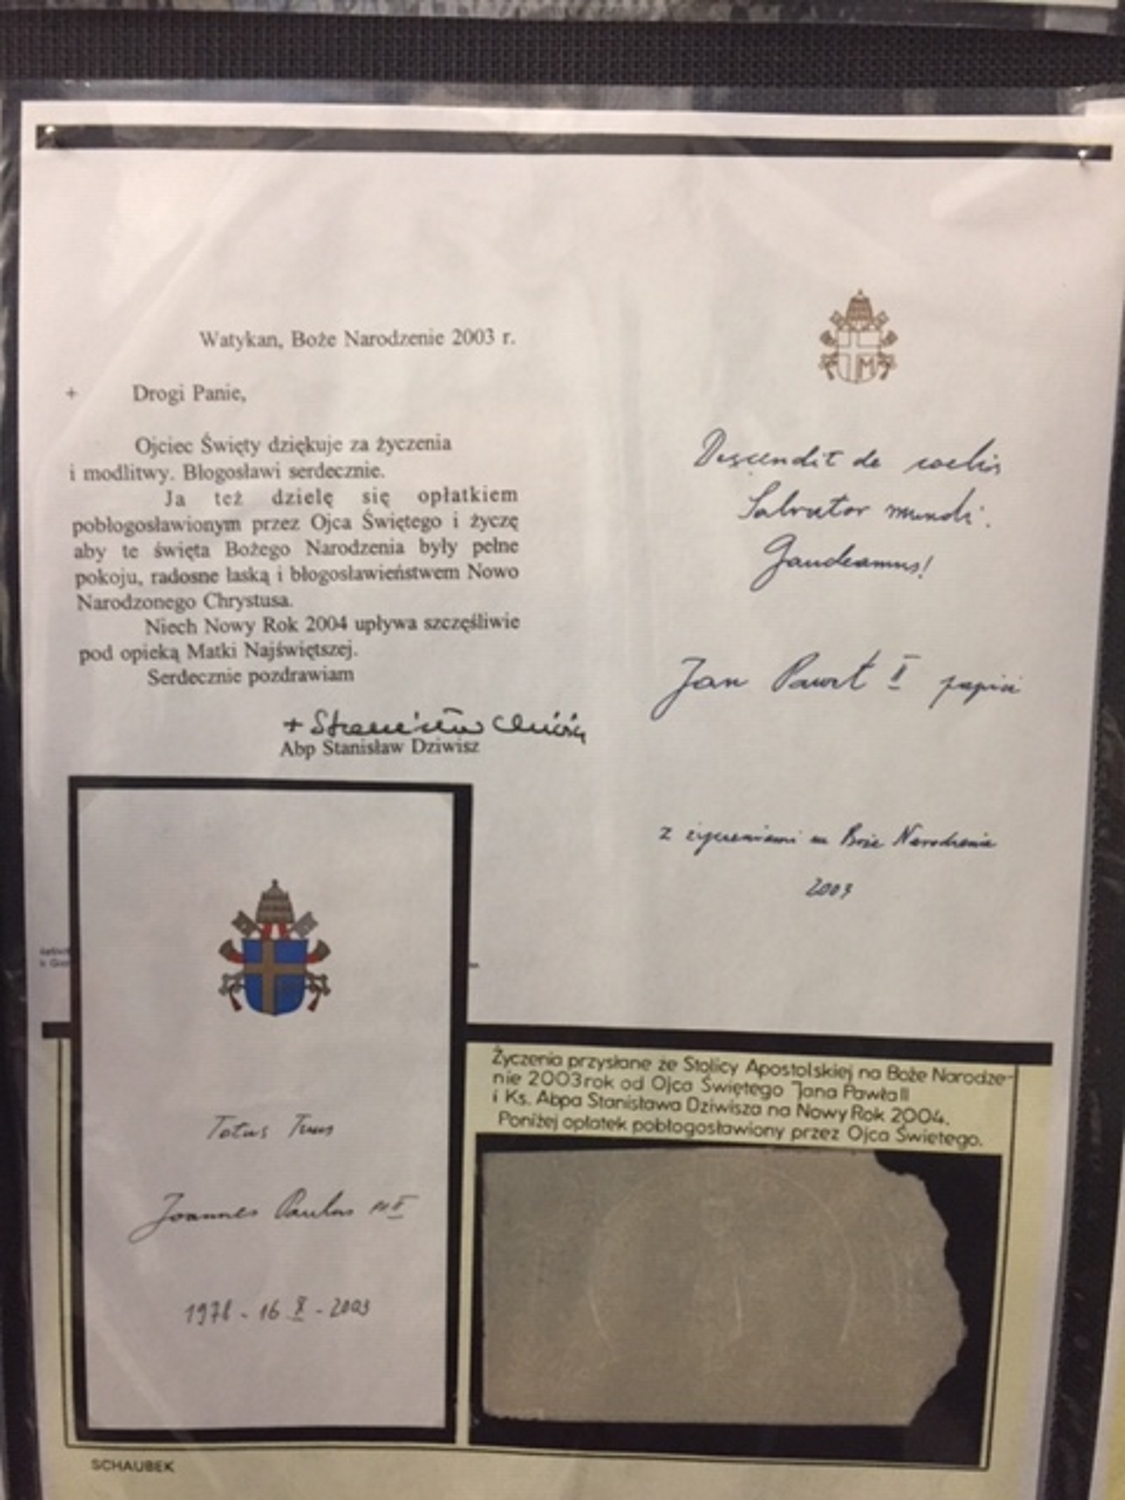 Watykan, Boże Narodzenie 2003 r.
+ Drogi Panie,
Ojciec Święty dziękuje za życzenia
i modlitwy. Błogosławi serdecznie.
Ja też dzielę się opłatkiem
pobłogosławionym przez Ojca Świętego i życzę
aby te święta Bożego Narodzenia były pełne
pokoju, radosne łaską i błogosławieństwem Nowo
Narodzonego Chrystusa.
Niech Nowy Rok 2004 upływa szczęśliwie
pod opieką Matki Najświętszej.
Serdecznie pozdrawiam
+ Stanisław Dziwisz
Abp Stanisław Dziwisz
M
Descendit de coelis
Salvator mundi.
Gaudeamus!
Jan Paweł II papież
z życzeniami na Boże Narodzenie
2003
Totus Tuus
Joannes Paulus PP II
1978 - 16 X - 2003
Życzenia przysłane ze Stolicy Apostolskiej na Boże Narodze-
nie 2003 rok od Ojca Świętego Jana Pawła II
i Ks. Abpa Stanisława Dziwisza na Nowy Rok 2004.
Poniżej opłatek pobłogosławiony przez Ojca Świetego.
SCHAUBEK